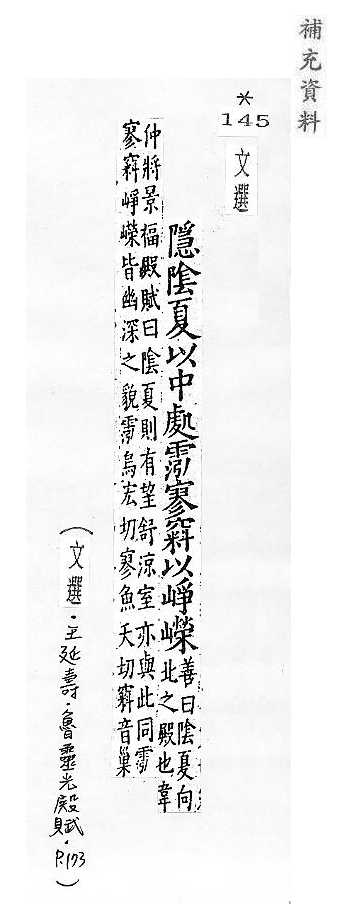 補充資料
*
145
文選
隱陰夏以中處霐寥窲以崢嶸善曰陰夏向
北之殿也韋
仲將景福殿賦曰陰夏則有望舒涼室亦與此同霐
寥窲崢嶸皆幽深之貌霐烏宏切寥魚天切窲音巢
(文選・王延壽・魯靈光殿賦・P.173)